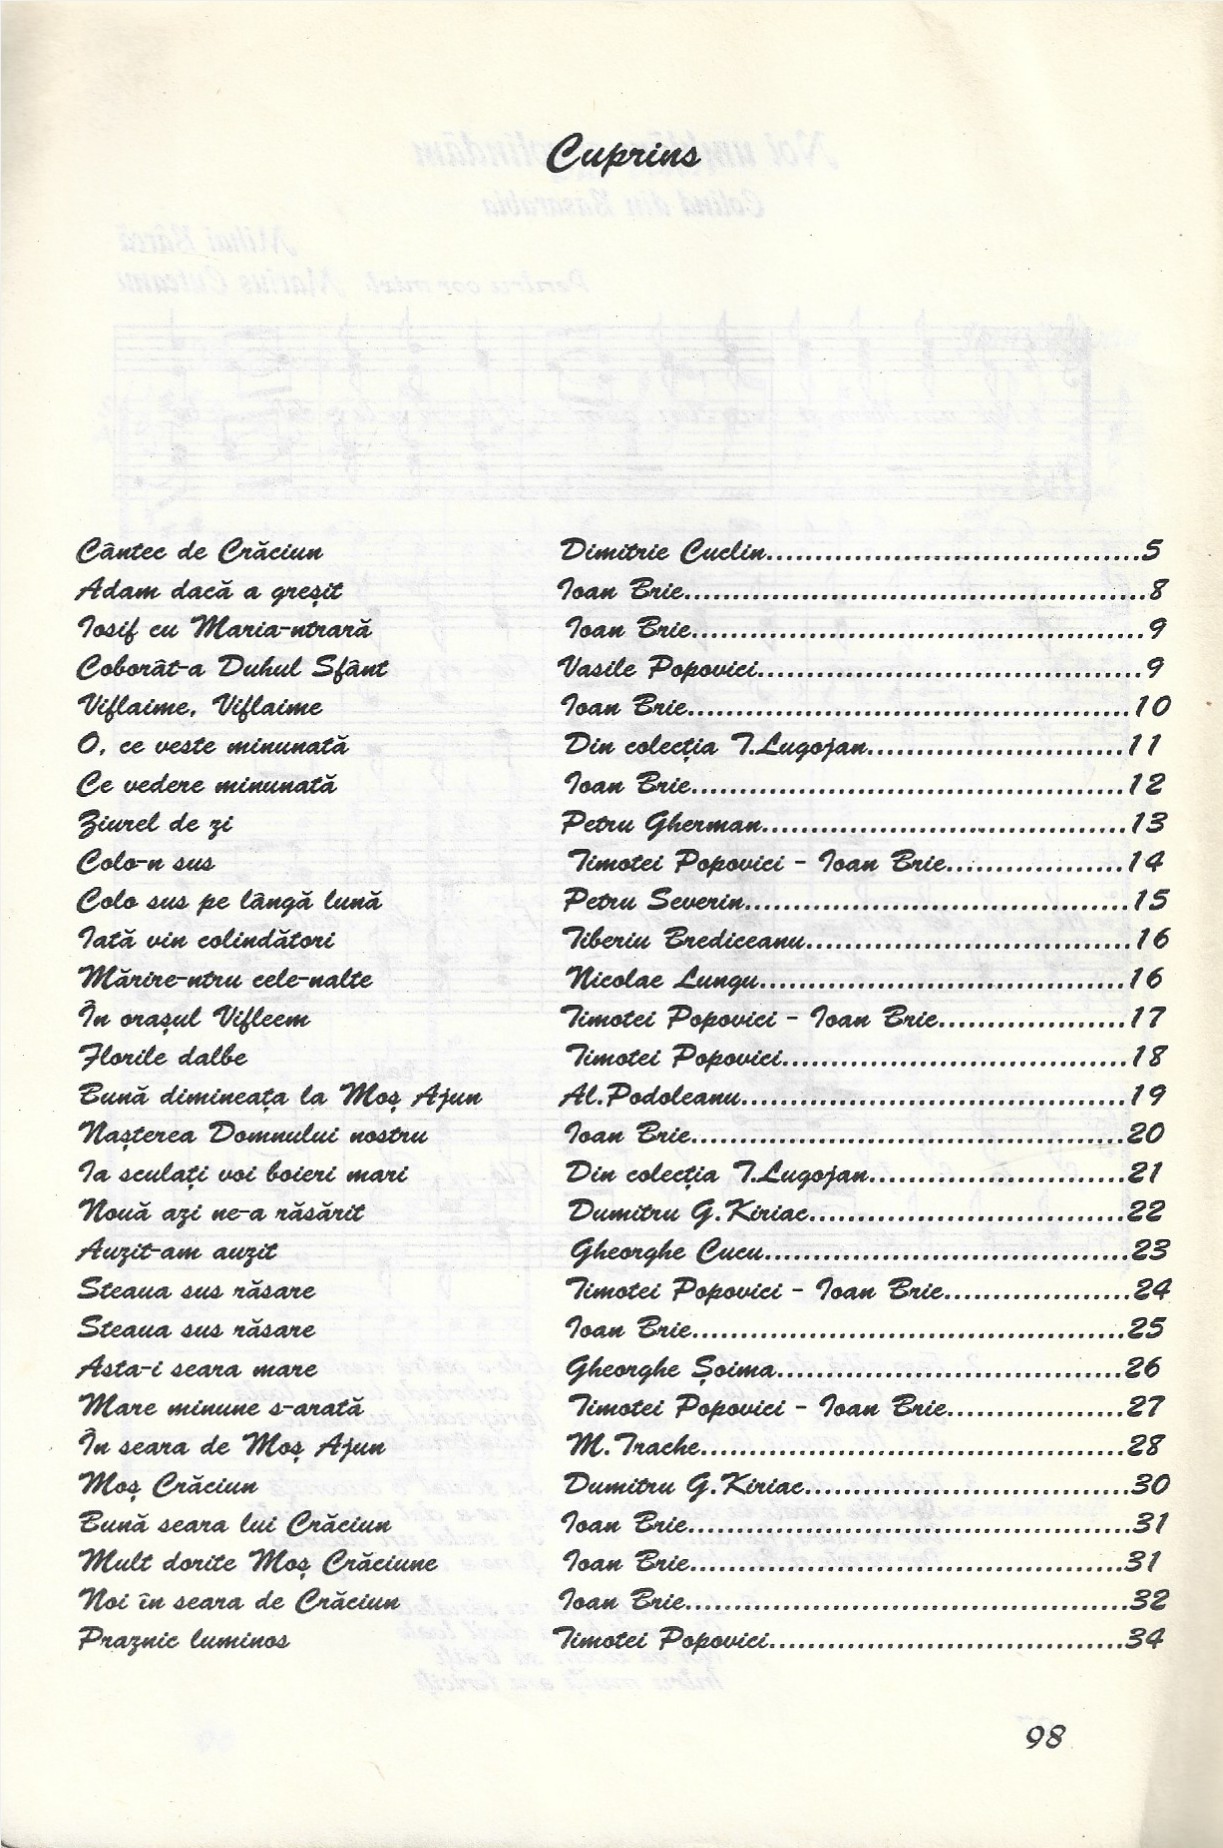 Cuprins
Cântec de Crăciun Dimitrie Cuclin........................................5
Adam dacă a greșit Ioan Brie.................................................8
Iosif cu Maria-ntrară Ioan Brie................................................9
Coborât-a Duhul Sfânt Vasile Popovici.........................................9
Viflaime, Viflaime Ioan Brie...............................................10
O, ce veste minunată Din colecția T.Lugojan...........................11
Ce vedere minunată Ioan Brie..............................................12
Ziurel de zi Petru Gherman.......................................13
Colo-n sus Timotei Popovici - Ioan Brie...................14
Colo sus pe lângă lună Petru Severin.........................................15
Iată vin colindători Tiberiu Brediceanu..................................16
Mărire-ntru cele-nalte Nicolae Lungu.......................................16
În orașul Vifleem Timotei Popovici - Ioan Brie....................17
Florile dalbe Timotei Popovici.....................................18
Bună dimineața la Moș Ajun Al.Podoleanu.........................................19
Nașterea Domnului nostru Ioan Brie..............................................20
Ia sculați voi boieri mari Din colecția T.Lugojan...........................21
Nouă azi ne-a răsărit Dumitru G.Kiriac.................................22
Auzit-am auzit Gheorghe Cucu.......................................23
Steaua sus răsare Timotei Popovici - Ioan Brie....................24
Steaua sus răsare Ioan Brie..............................................25
Asta-i seara mare Gheorghe Șoima.....................................26
Mare minune s-arată Timotei Popovici - Ioan Brie...................27
În seara de Moș Ajun M.Trache.............................................28
Moș Crăciun Dumitru G.Kiriac..................................30
Bună seara lui Crăciun Ioan Brie...............................................31
Mult dorite Moș Crăciune Ioan Brie..............................................31
Noi în seara de Crăciun Ioan Brie...............................................32
Praznic luminos Timotei Popovici......................................34
98